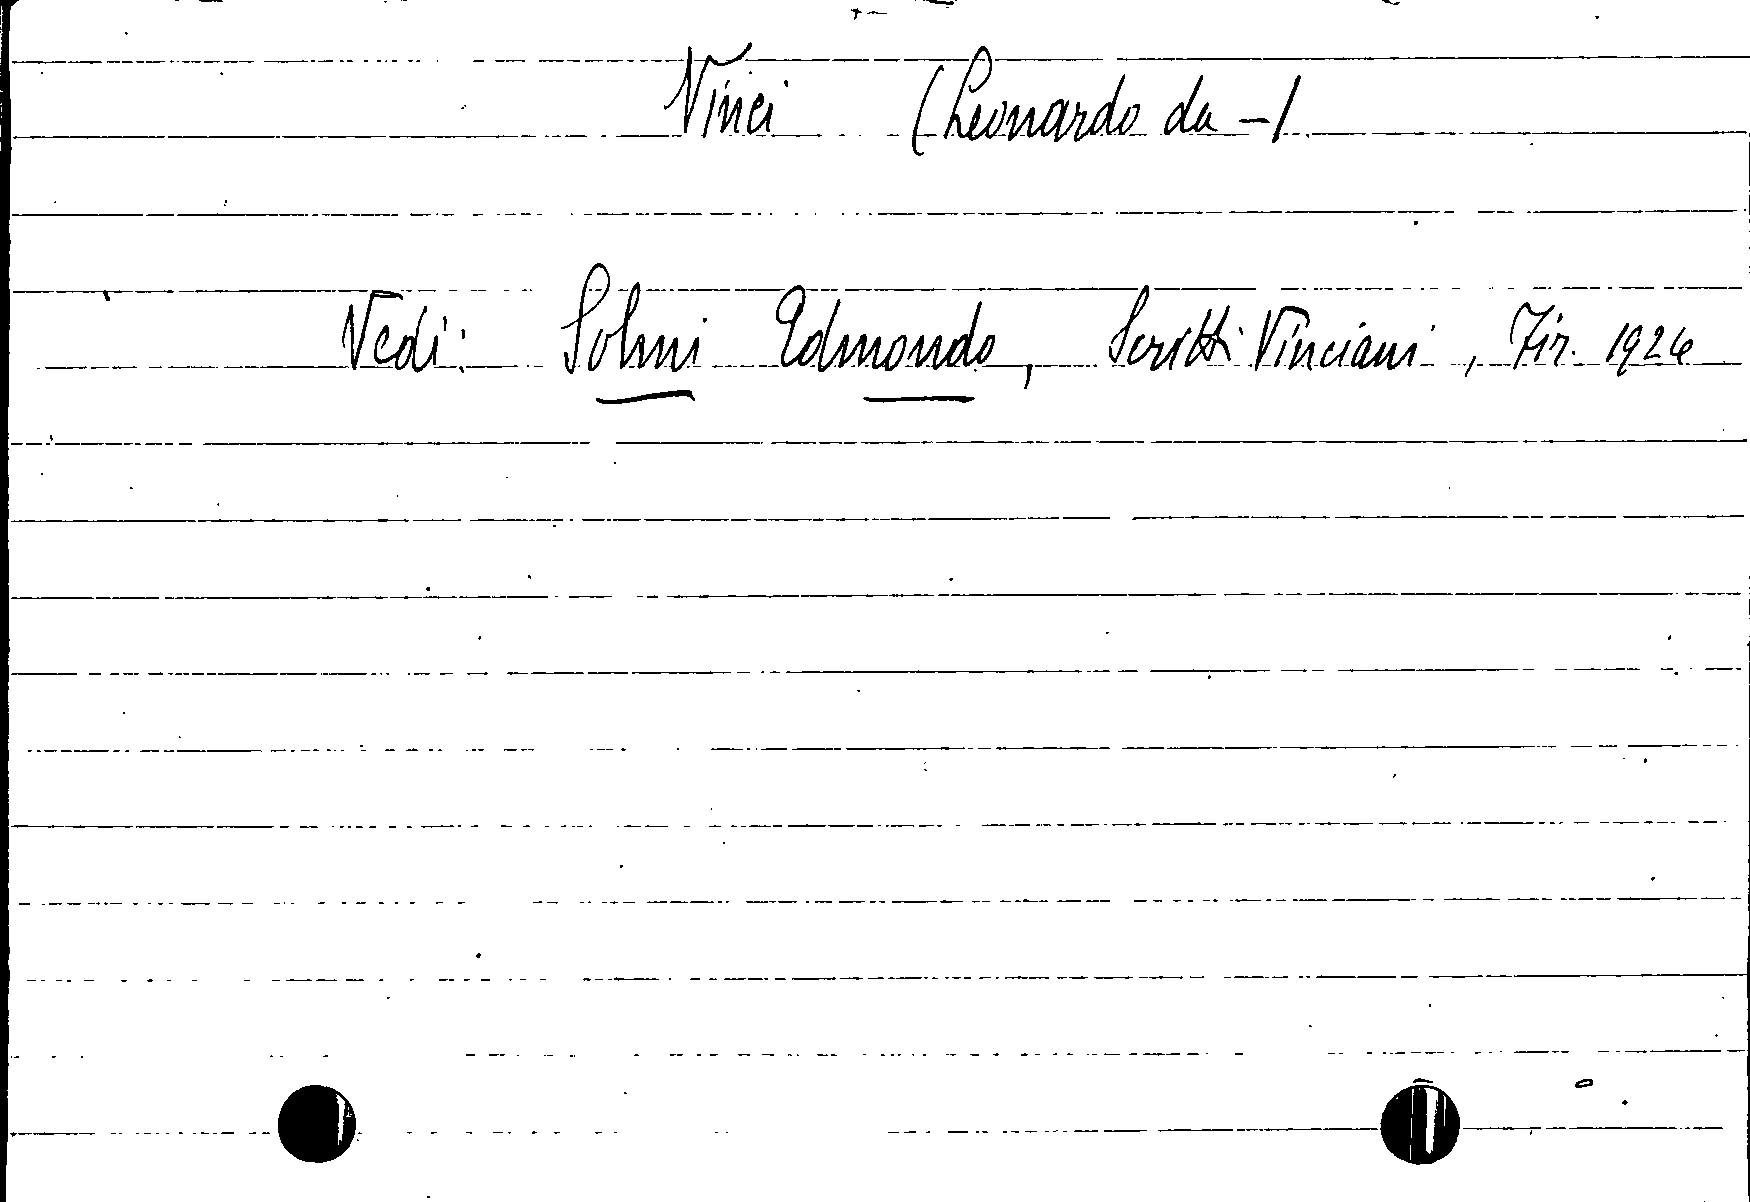 Vinci (Leonardo da -)
Vedi: Solmi Edmondo, Scritti Vinciani, Fir. 1924